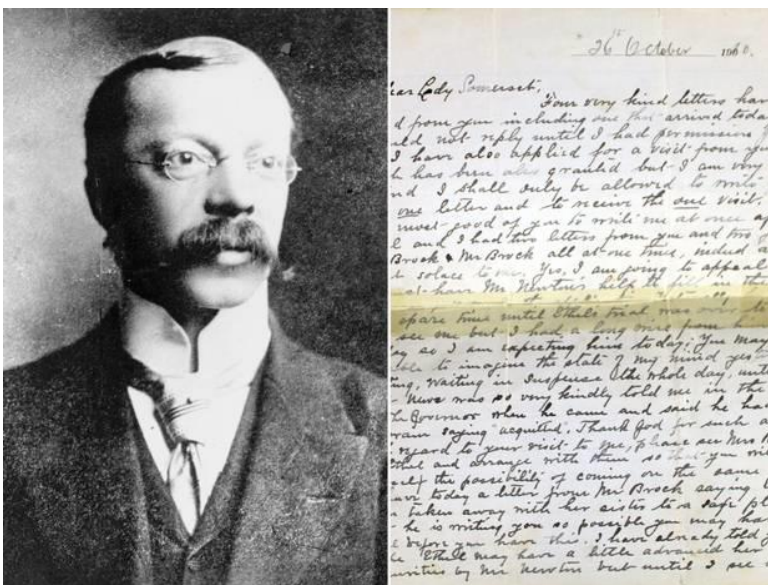 26th October 1910.
ear Lady Somerset,
Four very kind letters hav
d from you including one that arrived toda
uld not reply until I had permission
I have also applied for a visit from you
h has been also granted but I am very
nd I shall only be allowed to write
one letter and to receive the one visit.
most good of you to write me at once a
l and I had two letters from you and two
Brock & Mr Brock all at one time, indeed a
t solace to me. Yes, I am going to appeal
st have Mr Newton's help to fill in the
spare time until Ethel's trial, was
see me but I had a long wire from
so I am expecting him today; You may
ble to imagine the state of my mind yes
ing, waiting in suspense the whole day, unti
news was so very kindly told me in the
he Governor when he came and said he had
gram saying "acquitted". Thank God for such a
regard to your visit to me, please see Mrs B
thel and arrange with them so that you
the possibility of coming on the same
ave today a letter from Mr Brock saying
taken away with her sister to a safe pl
he is writing you so possible you may hav
before you have this. I have already told
Ethel may have a little advanced her
by Mr Newton but until I see